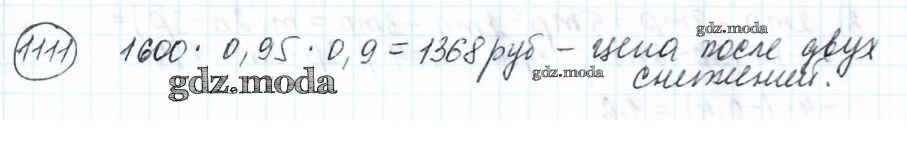 gdz.moda
1111 1600 · 0,95 · 0,9 = 1368 руб – цена после двух
gdz.moda
gdz.moda снижений.
gdz.moda